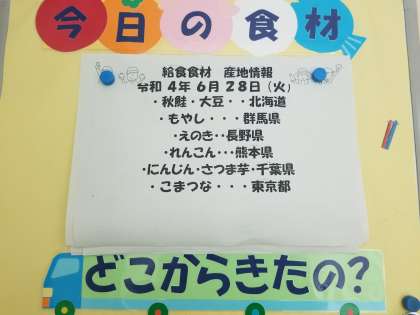 今日の食材
給食食材 産地情報
令和 4年 6月 28日(火)
・秋鮭・大豆・・北海道
・もやし・・・群馬県
・えのき・・長野県
・れんこん・・・熊本県
・にんじん・さつま芋・千葉県
・こまつな・・・東京都
どこからきたの?